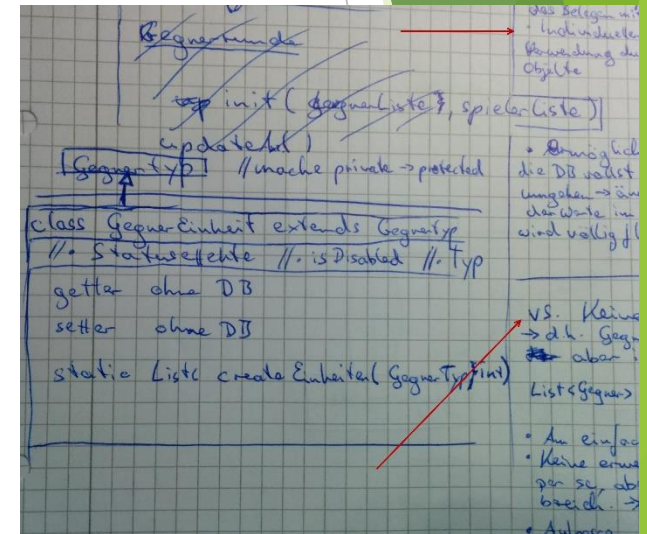 Gegnerkunde
init( gegnerListe, spielerListe)
updateArt)
GegnerTyp //mache private → protected
class GegnerEinheit extends Gegnertyp
//• Statuseffekte //• isDisabled //• Typ
getter ohne DB
setter ohne DB
static List< createEinheiten( GegnerTyp, int)
das Belegen mit
• Individuellen
Verwendung du
Objekte
• Ermöglich
die DB vollst
umgehen → än
der Werte im
wird völlig fl
vs. Keine
→ d.h. Gegn
aber
List<Gegner>
• Am einfac
• Keine erwe
per se, ab
bereich. →